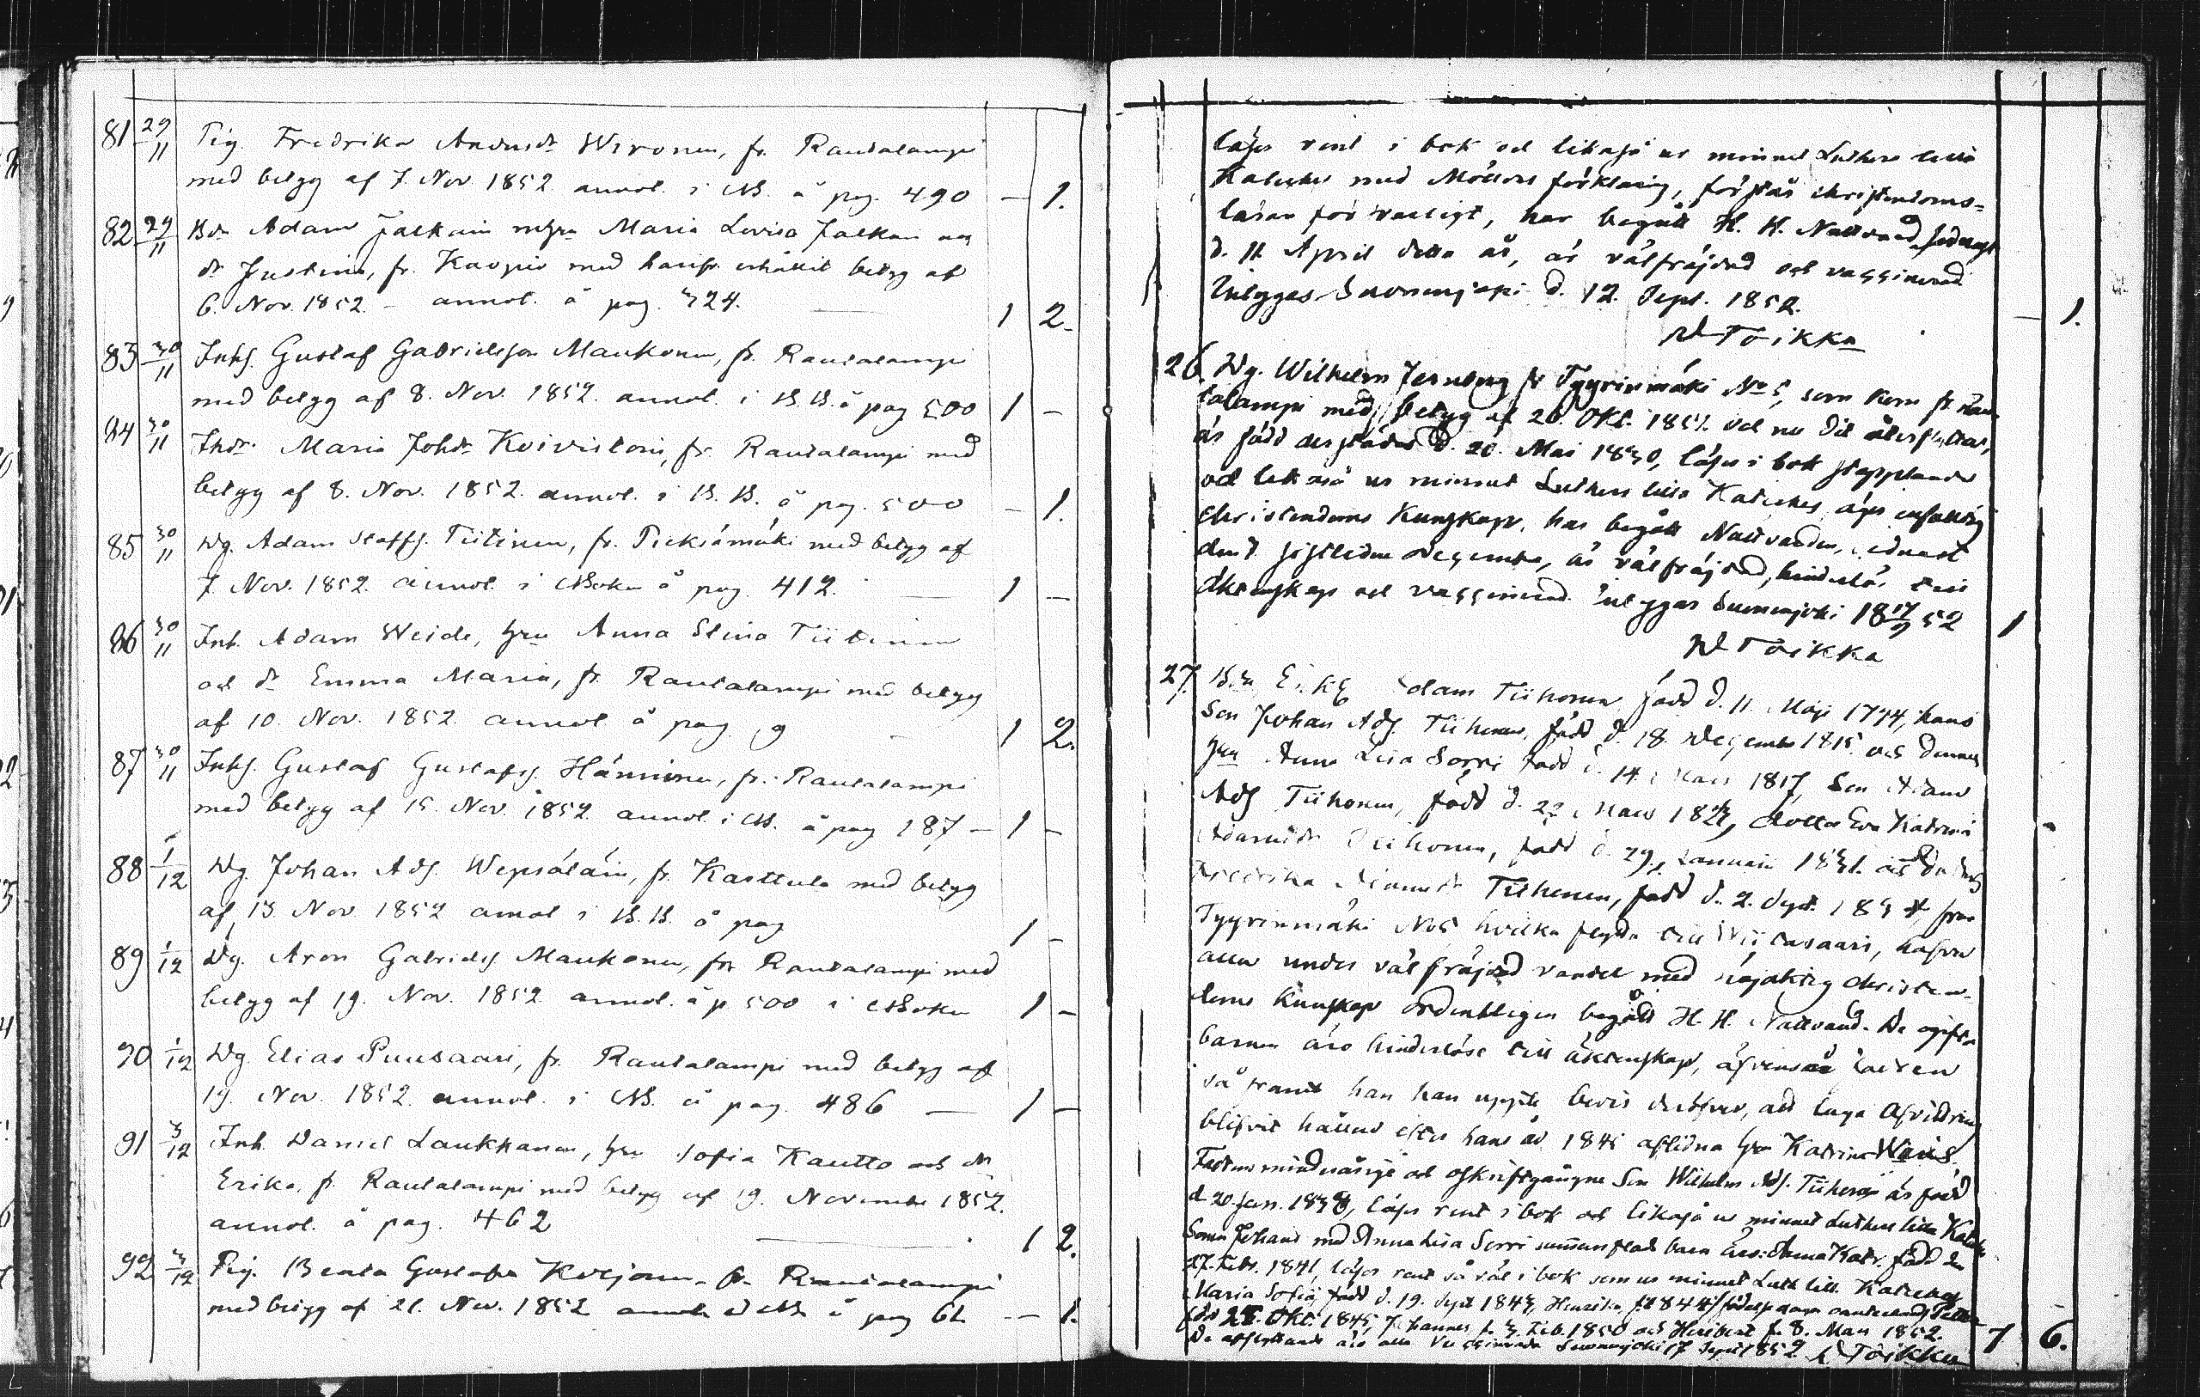 81 29/11 Pig. Fredrika Andersdr Wironen, fr. Rautalampi
med betyg af 7. Nov 1852 annot. i KB. å pag. 490 — 1.
82 29/11 Bdn Adam Jalkain m hru Maria Lovisa Jalkan och
dr Justina, fr. Kuopio med hans erhållit betyg af
6. Nov. 1852 — annot. å pag. 324. 1 2.
83 30/11 Inhs. Gustaf Gabrielsson Maukonen, fr. Rautalampi
med betyg af 8. Nov. 1852. annot. i K.B. å pag 500 1 —
84 30/11 Inhdr. Maria Johdr Koivistoin, fr. Rautalampi med
betyg af 8. Nov. 1852. annot. i K.B. å pag. 500 — 1.
85 30/11 Dg. Adam Staffs. Tiitinen, fr. Pieksämäki med betyg af
7. Nov. 1852. annot. i KBoken å pag. 412. 1 —
86 30/11 Inh. Adam Weide, hru Anna Stina Tiitinen
och dr Emma Maria, fr. Rautalampi med betyg
af 10. Nov. 1852 annot å pag. 9 1 2.
87 30/11 Inhs. Gustaf Gustafss. Hänninen, fr. Rautalampi
med betyg af 15. Nov. 1852. annot. i KB. å pag 187, — 1 —
88 1/12 Dg. Johan Ads. Wepsäläin, fr. Karttula med betyg
af 13. Nov 1852 annot i K.B. å pag 1 —
89 1/12 Dg. Aron Gabriels. Maukonen, fr. Rautalampi med
betyg af 19. Nov. 1852 annot. å p 500 i KBoken 1 —
90 1/12 Dg. Elias Puusaari, fr. Rautalampi med betyg af
19. Nov. 1852. annot. i KB. å pag. 486 — 1 —
91 3/12 Inh. Daniel Laukkanen, hru Sofia Kautto och dr
Erika, fr. Rautalampi med betyg af 19. November 1852.
annot. å pag. 462 1 2.
92 3/12 Pig. Beata Gustafsdr fr. Rautalampi
med betyg af 21. Nov. 1852 annot. i KB å pag 62 — 1.
läser rent i bok och likaså ur minnet Luthers lilla
Kateches med Möllers förklaring, förstår christendoms-
läran försvarligt, har begått H. H. Nattvard sednast
d. 11 April detta år, är välfräjdad och vaccinerad
intygas Suonenjoki d. 12. Sept. 1852. — 1.
Toikka
26. Dg. Wilhelm Jernberg fr Tyyrinmäki No 5, som kom fr Rau-
talampi med betyg af 26. Okt. 1851. och nu dit återflyttar,
är född derstädes d. 20. Maj 1830, läser i bok stapplande
och likaså ur minnet Luthers lilla Kateches, äger enfaldig
christendoms kunskap, har begått Nattvarden sednast
den sistledne December, är välfräjdad, hinderlös till
äktenskap och vaccinerad. intygar Suonenjoki 18 17/9 52 1
Toikka
27. Adam Tiihonen, född d. 11 Maji 1774, hans
Son Johan Ads. Tiihonen, född d. 18 December 1815. och dennes
hru Anna Lisa Sorri född d. 14 Mars 1817, Son Adam
Ads Tiihonen, född d. 22 Mars dotter Eva Katrina
Adamsdr Tiihonen, född d. 29. Januari 1831. och
Fredrika Adamsdr Tiihonen, född d. 2. Sept. från
Tyyrinmäki No 5 hvilka flytta till Wiitasaari, hafva
alla under välfräjdad vandel med nöjaktig christen-
doms kunskap ordentligen begått H. H. Nattvard. De ogifta
barnen äro hinderlösa till äktenskap, äfvenså fadren
så framt han kan uppte bevis deröfver, att laga afvittring
blifvit hållen efter hans år 1845 aflidna hru Katrina
Fadrens minderårige och oskriftgångne Son Wilhelm Ads. Tiihonen är född
d. 20 Jan. 1838, läser rent i bok och likaså ur minnet Luthers lilla Kateches
Sonen Johans med Anna Lisa Sorri sammanaflade barn äro: Anna Katr. född den
27. Febr. 1841 läser rent så väl i bok som ur minnet Luth lill. Kateches
Maria Sofia, född d. 19. Sept 1843, Henrika, f. 1844 Petter
född 25. Okt. 1845, Johannes f. 3. Feb. 1850 och Heribert f. 8. Mars 1852.
De afflyttande äro alla vaccinerade Suonenjoki 17 Sept 1852 Toikka 7 6.